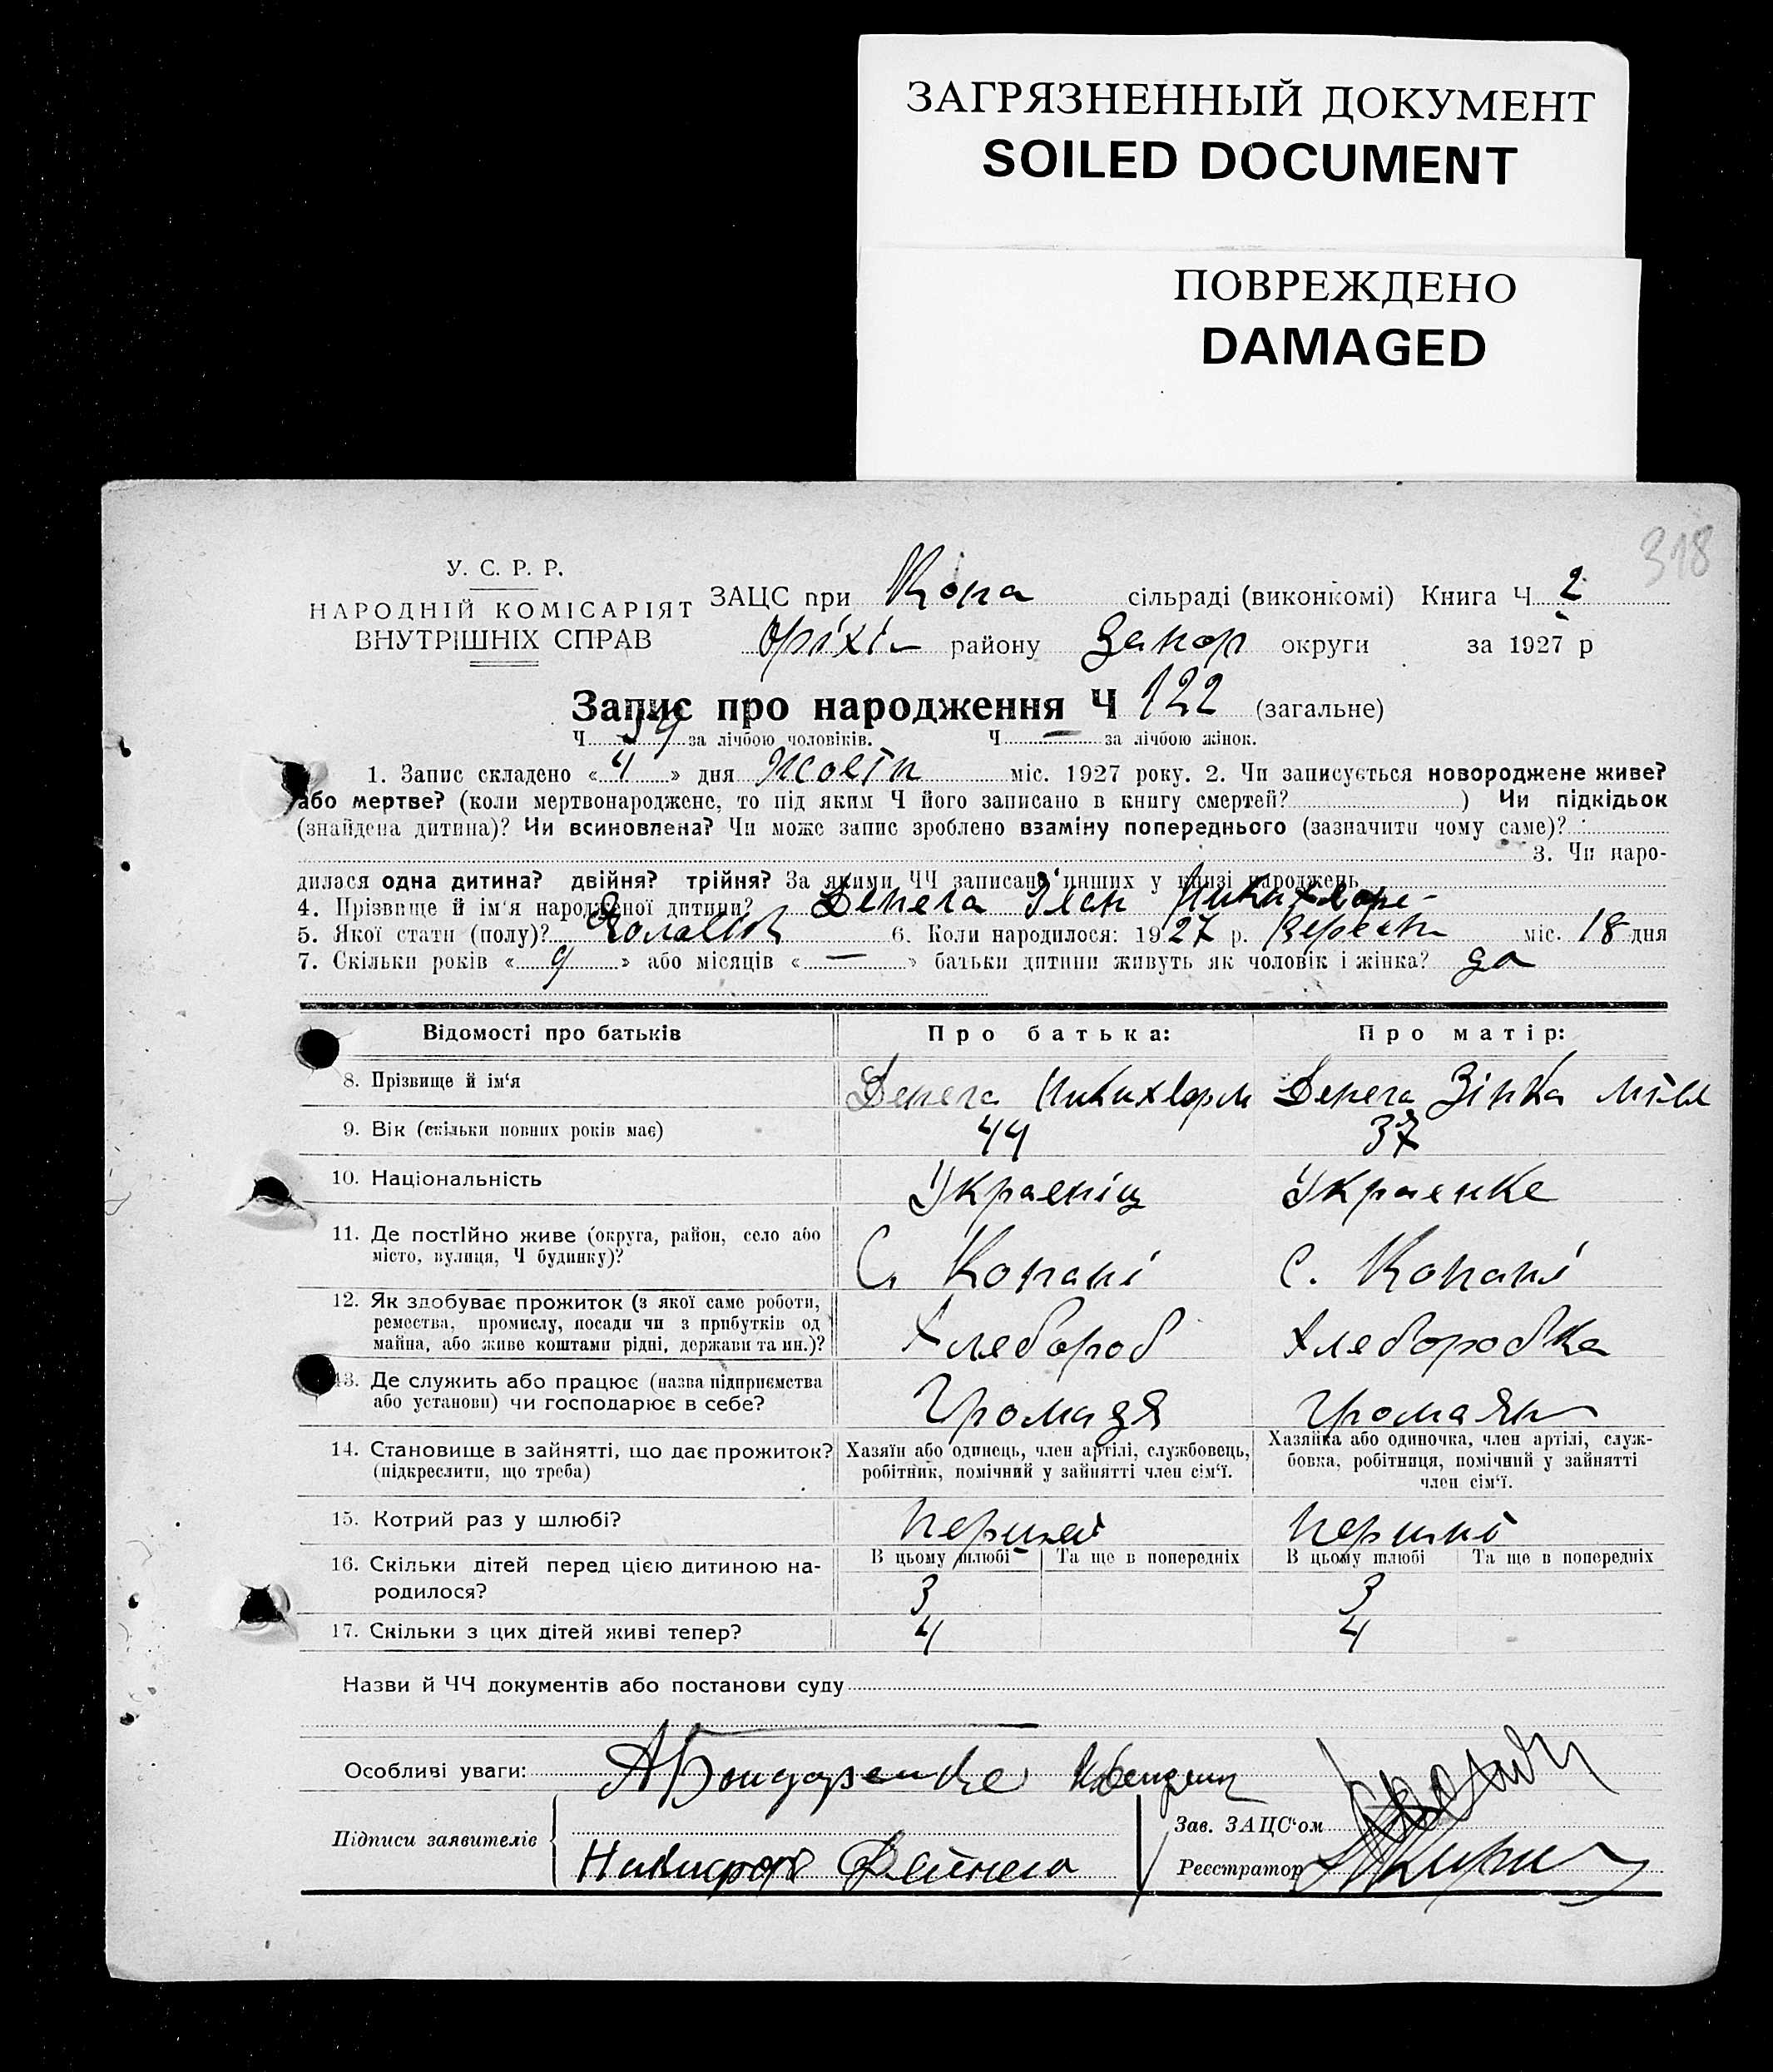 ЗАГРЯЗНЕННЫЙ ДОКУМЕНТ
SOILED DOCUMENT
ПОВРЕЖДЕНО
DAMAGED
318
У. С. Р. Р.
НАРОДНІЙ КОМІСАРІЯТ
ВНУТРІШНІХ СПРАВ
ЗАЦС при Копа сільраді (виконкомі) Книга Ч 2
Оріхі района Запор округи за 1927 р
Запис про народження Ч 122 (загальне)
Ч 59 за лічбою чоловіків. Ч — за лічбою жінок.
1. Запис складено « 4 » дня Жовтн міс. 1927 року. 2. Чи записується новороджене живе?
або мертве? (коли мертвонароджене, то під яким Ч його записано в книгу смертей? ) Чи підкідьок
(знайдена дитина)? Чи всиновлена? Чи може запис зроблено взаміну попереднього (зазначити чому саме)?
3. Чи наро-
дилася одна дитина? двійня? трійня? За якими ЧЧ записано инших у книзі народжень
4. Прізвище й ім'я народженої дитини? Денега Іван Никихворе-
5. Якої стати (полу)? 6. Коли народилося: 1927 р. Вересн міс. 18 дня
7. Скільки років « 9 » або місяців « — » батьки дитини живуть як чоловік і жінка? да
Відомості про батьків Про батька: Про матір:
8. Прізвище й ім'я Денега Никихвор Денега Зінка
9. Вік (скільки повних років має) 44 37
10. Національність Украеніц Украенке
11. Де постійно живе (округа, район, село або
місто, вулиця, Ч будинку)? С. Копані С. Копані
12. Як здобуває прожиток (з якої саме роботи,
ремества, промислу, посади чи з прибутків од
майна, або живе коштами рідні, держави та ин.)? Хлебороб Хлеборобка
13. Де служить або працює (назва підприємства
або установи) чи господарює в себе? Громадя Громаян
14. Становище в зайнятті, що дає прожиток?
(підкреслити, що треба)
Хазяїн або одинець, член артілі, службовець,
робітник, помічний у зайнятті член сім'ї.
Хазяйка або одиночка, член артілі, служ-
бовка, робітниця, помічний у зайнятті
член сім'ї.
15. Котрий раз у шлюбі? первей перший
16. Скільки дітей перед цією дитиною на-
родилося?
В цьому шлюбі Та ще в попередніх В цьому шлюбі Та ще в попередніх
3 3
17. Скільки з цих дітей живі тепер? 4 4
Назви й ЧЧ документів або постанови суду
Особливі уваги: А Бондаренко
Підписи заявителів
Никифор Дейнега
Зав. ЗАЦС'ом
Реєстратор